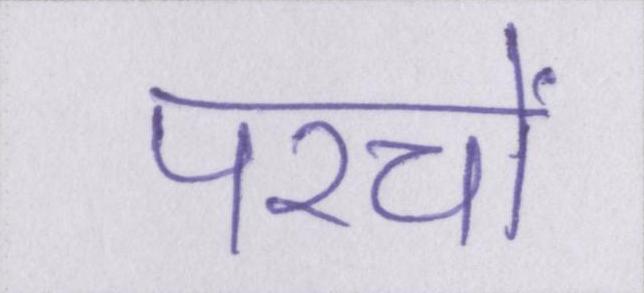 परचों